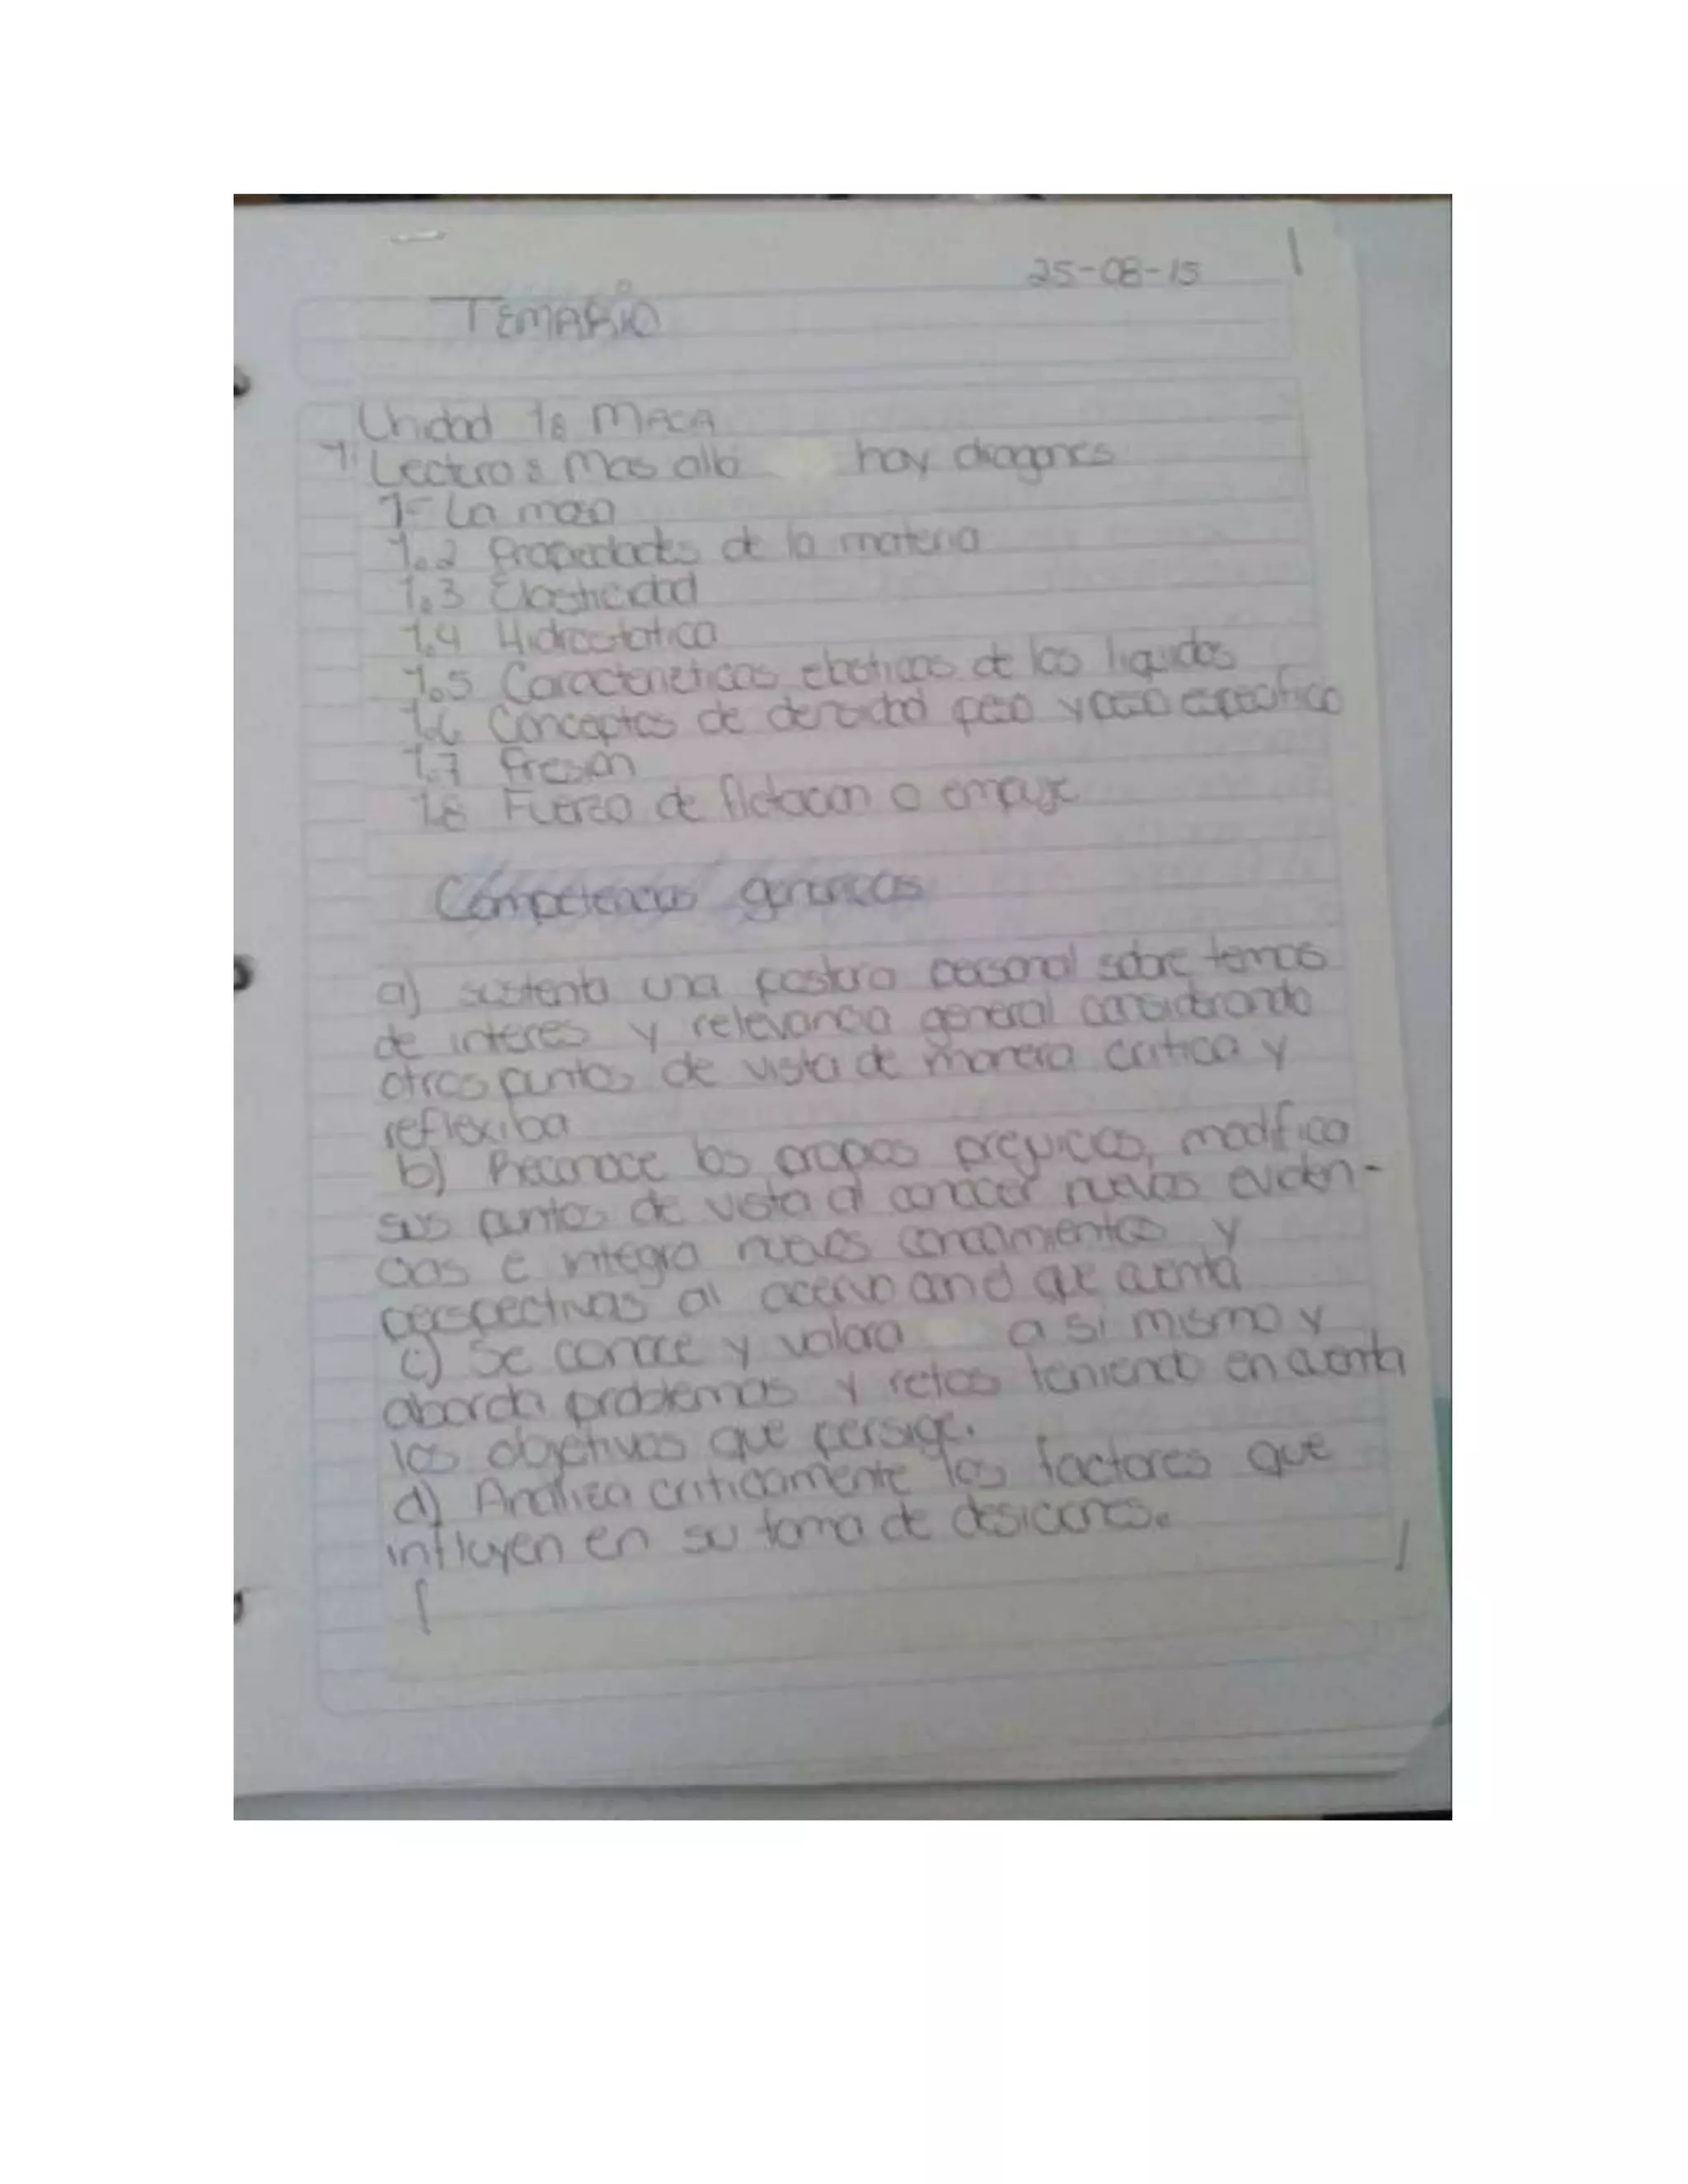 25-08-15
TEMARIO
Unidad 1: MASA
1. Lectura: Mas alla hay dragones
1- La masa
1.2 Propiedades de la materia
1.3 Elasticidad
1.4 Hidrostatica
1.5 Caracteristicas elasticas de los liquidos
1.6 Conceptos de densidad peso y peso especifico
1.7 Presion
1.8 Fuerza de flotacion o empuje
Competencias genericas
a) sustenta una postura personal sobre temas
de interes y relevancia general considerando
otros puntos de vista de manera critica y
reflexiba
b) Reconoce los propios prejuicios, modifica
sus puntos de vista al conocer nuevas eviden-
cias e integra nuevos conocimientos y
perspectivas al acervo con el que cuenta
c) Se conoce y valora a si mismo y
aborda problemas y retos teniendo en cuenta
los objetivos que persige.
d) Analiza criticamente los factores que
influyen en su toma de desiciones.